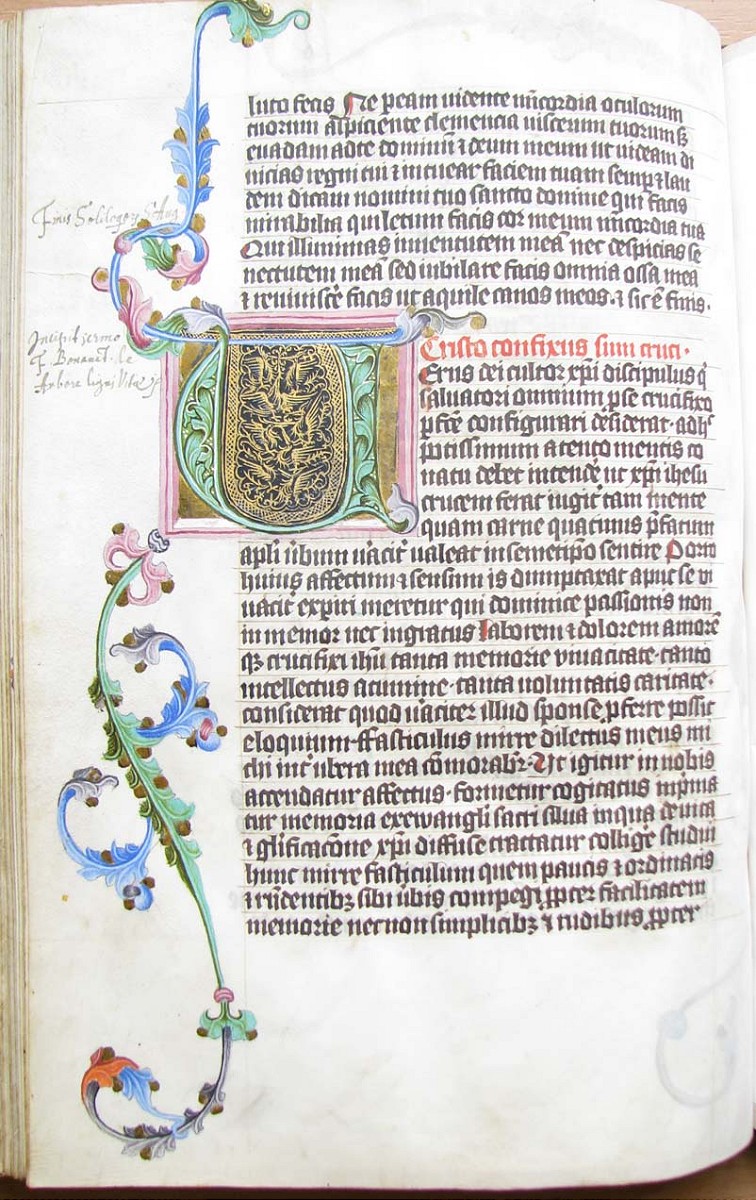 luto fecis Ne peam uidente mĩcordia oculorum
tuorum aspiciente clemencia uiscerum tuorum sꝫ
euadam ad te dominũ ⁊ deum meum ut uideam di
uicias regni tui ⁊ intuear faciem tuam semp̱ ⁊ lau
dem dicam nomini tuo sancto domine qui facis
mirabilia qui letum facis cor meum mĩcordia tua
Qui illuminas iuuentutem meã nec despicias se
nectutem meã sed iubilare facis omnia ossa mea
⁊ reuiuiscẽ facis ut aquile canos meos. ⁊ sic ẽ finis.
Finis Soliloqꝫ S. Aug
Incipit sermo
F. Bonauet. de
Arbore ligni Vitæ
Cristo confixus sum cruci.
Uerus dei cultor xp̃i discipulus q̇
saluatori omnium p̱se crucifixo
p̱fc̃e configurari desiderat. ad h͛
potissimum attento mentis co
natu debet intendẽ ut xp̃i ihesu
crucem ferat iugit͛ tam mente
quam carne quatinus p̃fatum
apl̃i ũbum ũacit͛ ualeat in semetip̃o sentire Porro
huius affectum ⁊ sensum is dumptaxat apud se vi
uacit͛ exp̱iri meretur qui dominice passionis non
inmemor nec ingratus laborem ⁊ dolorem amorẽ
qꝫ crucifixi ihũ tanta memorie viuacitate. tanto
intellectus acumine. tanta uoluntatis caritate.
considerat quod ũaciter illud sponse p̱ferre possit
eloquium. ffasciculus mirre dilectus meus mi
chi int͛ ubera mea cõmorabr̃. Ut igitur in nobis
accendatur affectus. formetur cogitatus inp̃ma
tur memoria ex ewangelii sacri silua in qua de uita
⁊ gl̃ificacõne xp̃i diffuse tractatur collige studui
hunc mirre fasciculum quem paucis ⁊ ordinatis
⁊ r̃ñdentibꝫ sibi ũbis compegi ꝓpter facilitatem
memorie nec non simplicibꝫ ⁊ rudibus ꝓpter